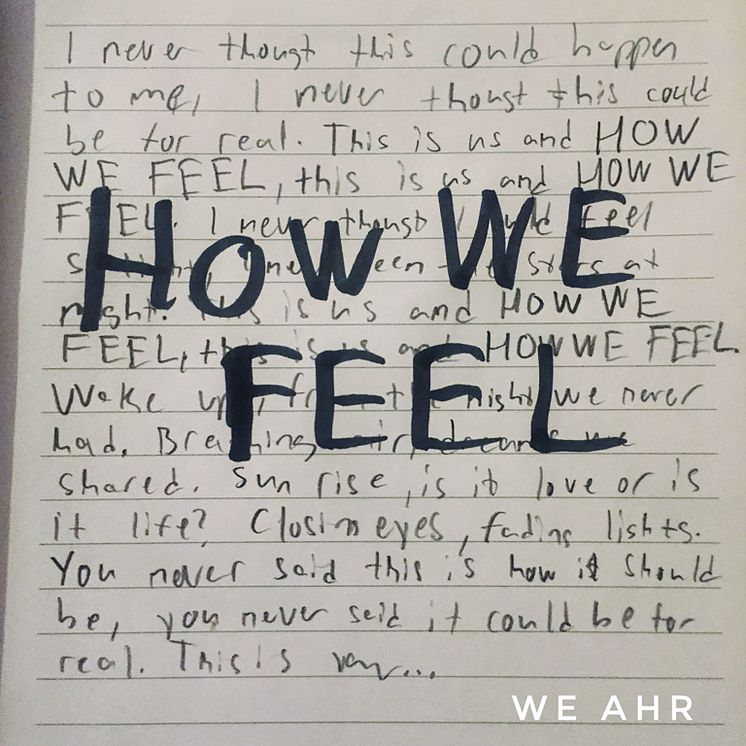 I never thougt this could happen
to me, I never thougt this could
be for real. This is us and HOW
WE FEEL, this is us and HOW WE
FEEL. I never thougt I could feel
at
night. This is us and HOW WE
FEEL, this is us and HOW WE FEEL.
HOW WE
FEEL
Wake up, from the night we never
had. Breathing air, dreams we
shared. Sun rise, is it love or is
it life? Closing eyes, fading lights.
You never said this is how it should
be, you never said it could be for
real. This is
WE AHR